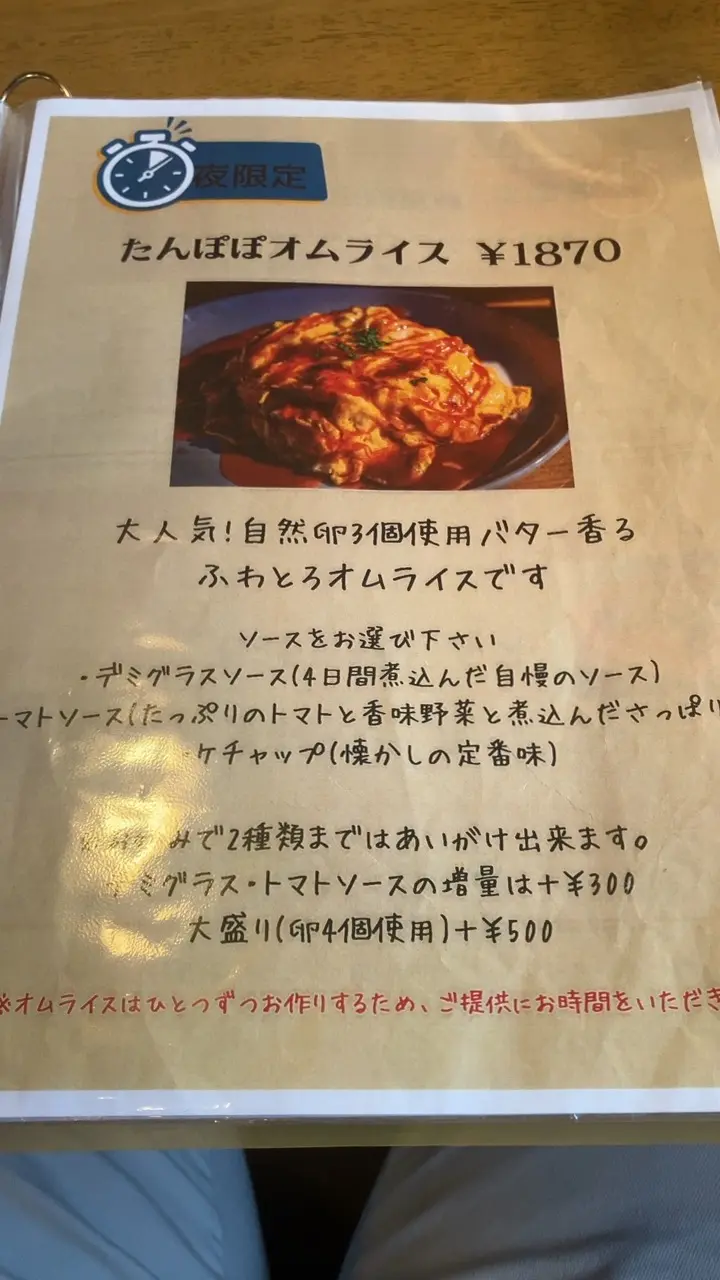 夜限定
たんぽぽオムライス ¥1870
大人気!自然卵3個使用バター香る
ふわとろオムライスです
ソースをお選び下さい
・デミグラスソース(4日間煮込んだ自慢のソース)
ーマトソース(たっぷりのトマトと香味野菜と煮込んださっぱり
・ケチャップ(懐かしの定番味)
みで2種類まではあいがけ出来ます。
ミグラス・トマトソースの増量は+¥300
大盛り(卵4個使用)+¥500
※オムライスはひとつずつお作りするため、ご提供にお時間をいただき